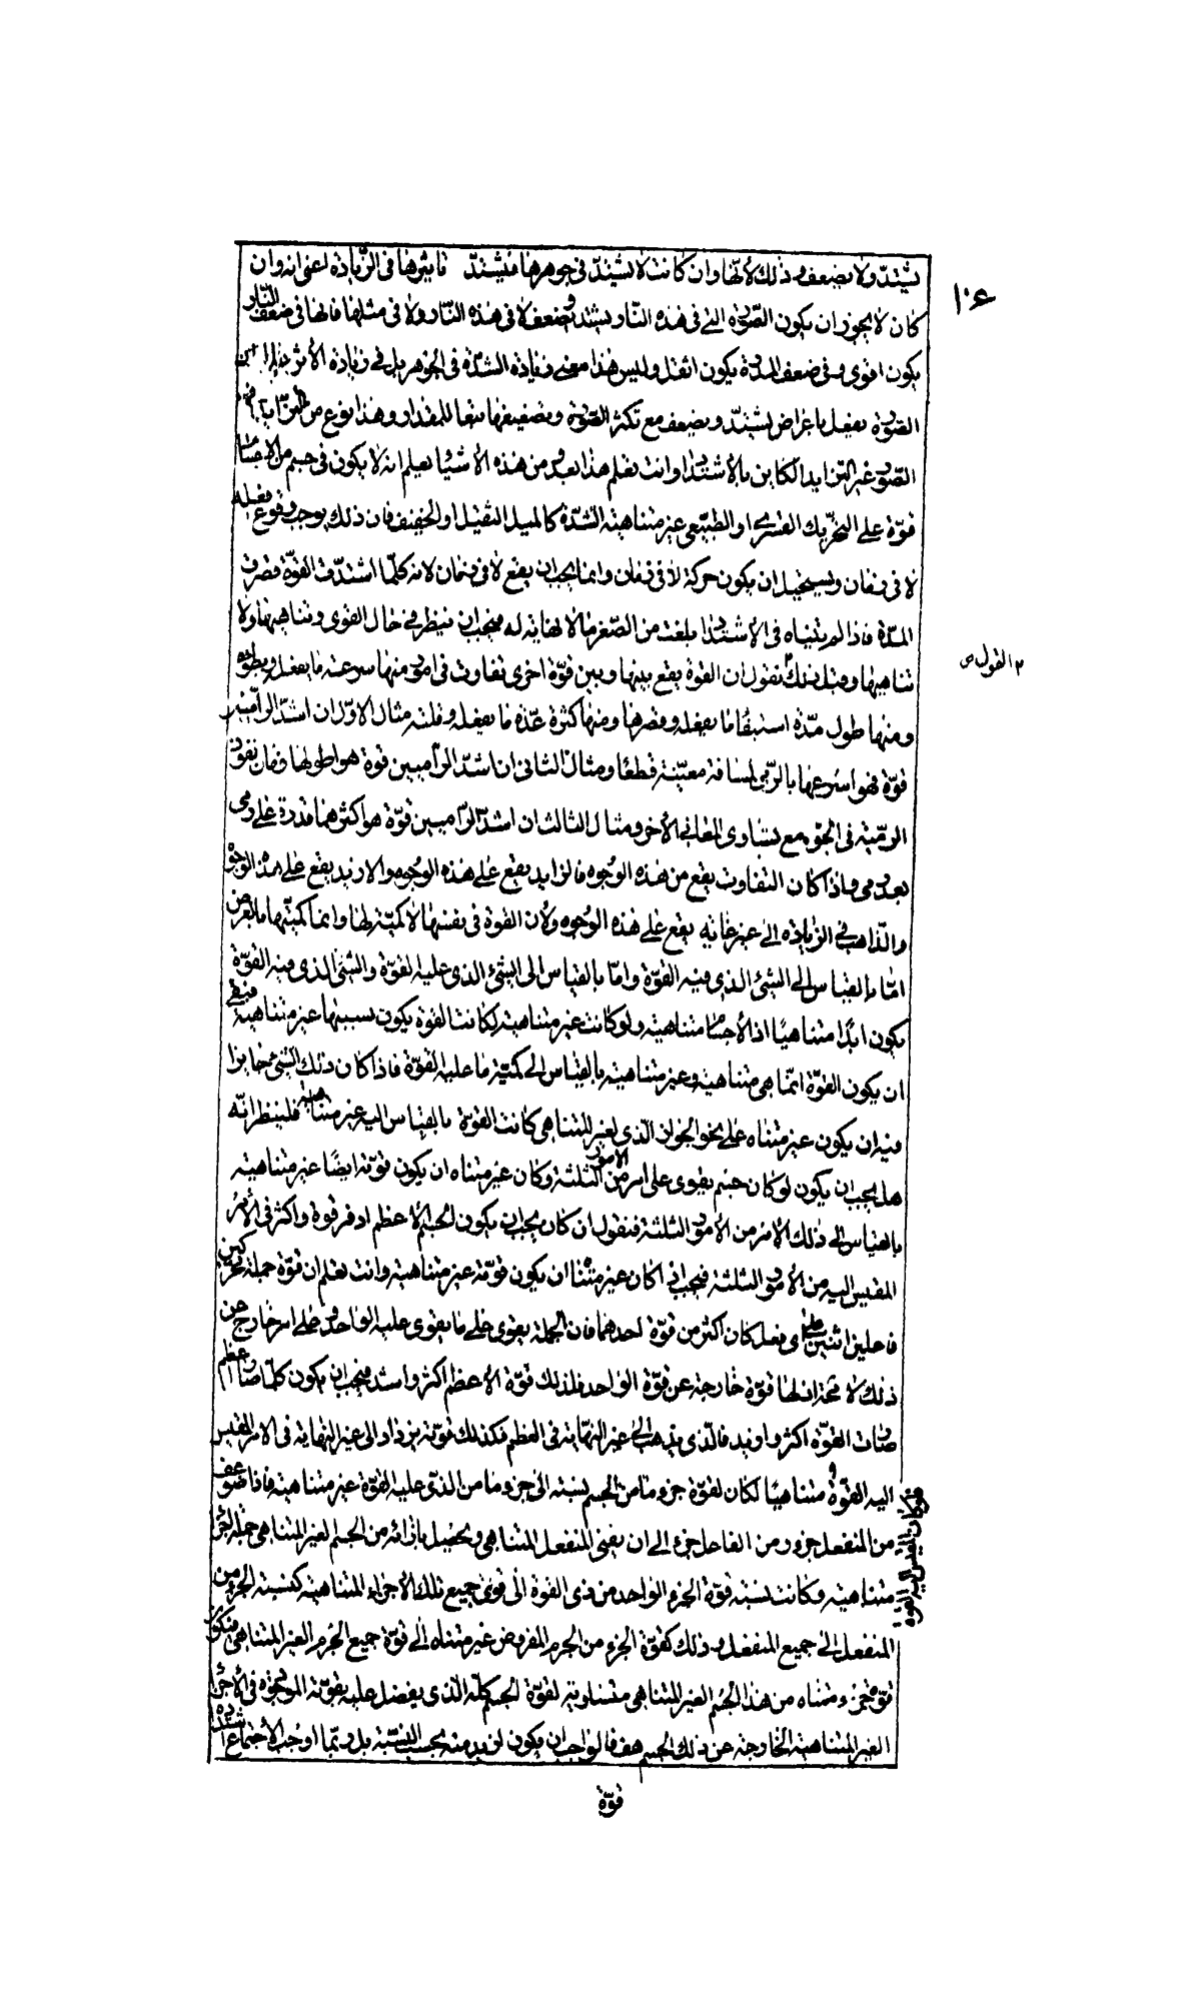 يشتد ولا يضعف وذلك لأنها وان كانت لا تشتد في جوهرها فيشتد تاثيرها في الزيادة اعنى انه وان
١٠٤
كان لا يجوز ان يكون الصورة التي في هذه النار يشتد ويضعف لا في هذه النار ولا في مثلها فانها في ضعف النار
يكون اقوى وفى ضعف المدرة يكون اثقل وليس هذا معنى زيادة الشدة في الجوهر بل في زيادة الأثر
الصورة يفعل باعراض يشتد ويضعف مع تكثر الصورة وتضعيفها تبعا للمقدار وهذا نوع من
الصور غير التزايد الكاين بالأشتداد وانت تعلم هذا بعد من هذه الأشياء يعلم انه لا يكون في جسم من الاجسام
قوة على التحريك القسرى او الطبيعى غير متناهية الشدة كالميل الثقيل او الخفيف فان ذلك يوجب وقوع فعله
لا في زمان ويستحيل ان يكون حركة لا في زمان وانما يجب ان يقع لا في زمان لانه كلما اشتدت القوة قصرت
المدة فاذا لم يتناه في الأشتداد بلغت من الصغر ما لا نهاية له فيجب ان ينظر في حال القوى وتناهيها ولا
٢ القول ص
تناهيها وقبل ذلك نقول ان القوة يقع بينها وبين قوة اخرى تفاوت في امور منها سرعة ما يفعل وبطؤه
ومنها طول مدة استبقاء ما يفعله وقصرها ومنها كثرة عدة ما يفعله وقلته مثال الاول ان اشد الراميين
قوة فهو اسرعها بالرمى لمسافة معينة قطعا ومثال الثانى ان اشد الراميين قوة هو اطولها زمان نفوذ
الرمية في الجو مع تساوى المعانى الأخر ومثال الثالث ان اشد الراميين قوة هو اكثرهما قدرة على رمى
بعد رمى واذا كان التفاوت يقع من هذه الوجوه فالزايد يقع على هذه الوجوه والازيد يقع على هذه الوجوه
والذاهب في الزيادة الى غير غاية يقع على هذه الوجوه ولان القوة في نفسها لا كمية لها وانما كميتها بالعرض
اما بالقياس الى الشئ الذى فيه القوة واما بالقياس الى الشئ الذى عليه القوة والشئ الذى فيه القوة
يكون ابدا متناهيا اذ الأجسام متناهية ولو كانت غير متناهية لكانت القوة يكون بسببها غير متناهية فبقى
ان يكون القوة انما هى متناهية وغير متناهية بالقياس الى كمية ما عليه القوة فاذا كان ذلك الشئ جايزا
فيه ان يكون غير متناه على نحو الجواز الذى لغير المتناهى كانت القوة بالقياس اليه غير متناهية فلينظر انه
هل يجب ان يكون لو كان جسم يقوى على امر من الامور الثلثة وكان غير متناه ان يكون قوته ايضا غير متناهية
بالقياس الى ذلك الأمر من الأمور الثلثة فنقول ان كان يجب ان يكون الجسم الأعظم اوفر قوة واكثر في الأمر
المقيس اليه من الأمور الثلثة فيجب اذا كان غير متناه ان يكون قوته غير متناهية وانت تعلم ان قوة جملة محركين
فاعلين اثنين على اى فعل كان اكثر من قوة احدهما فان الجملة يقوى على ما يقوى عليه الواحد وعلى امر خارج عن
ذلك لا محة ان لها قوة خارجة عن قوة الواحد فلذلك قوة الأعظم اكثر واشد فيجب ان يكون كلما صار اعظم
صارت القوة اكثر وازيد فالذى يذهب الى غير النهاية في العظم فكذلك قوته يزداد الى غير النهاية في الامر المقيس
اليه القوة متناهيا لكان لقوة جزء ما من الجسم نسبة الى جزء ما من الذى عليه القوة غير متناهية فاذا ضوعف
من المنفعل جزء ومن الفاعل جزء الى ان يفنى المنفعل المتناهى ويحصل بازائه من الجسم الغير المتناهى جملة اجزاء
متناهية وكانت نسبة قوة الجزء الواحد من ذى القوة الى قوى جميع تلك الأجزاء المتناهية كنسبة الجزء من
المنفعل الى جميع المنفعل وذلك كقوة الجزء من الجرم المفروض غير متناه الى قوة جميع الجرم الغير المتناهى فيكون
قوة جزء متناه من هذا الجسم الغير المتناهى متساوية لقوة الجسم كله الذى يفضل عليه بقوته الموجودة في الأجزاء
الغير المتناهية الخارجة عن ذلك الجسم هف فالواجب ان يكون ازيد منه بحسب النسبة بل ربما اوجب الأجتماع اشتداد
قوة